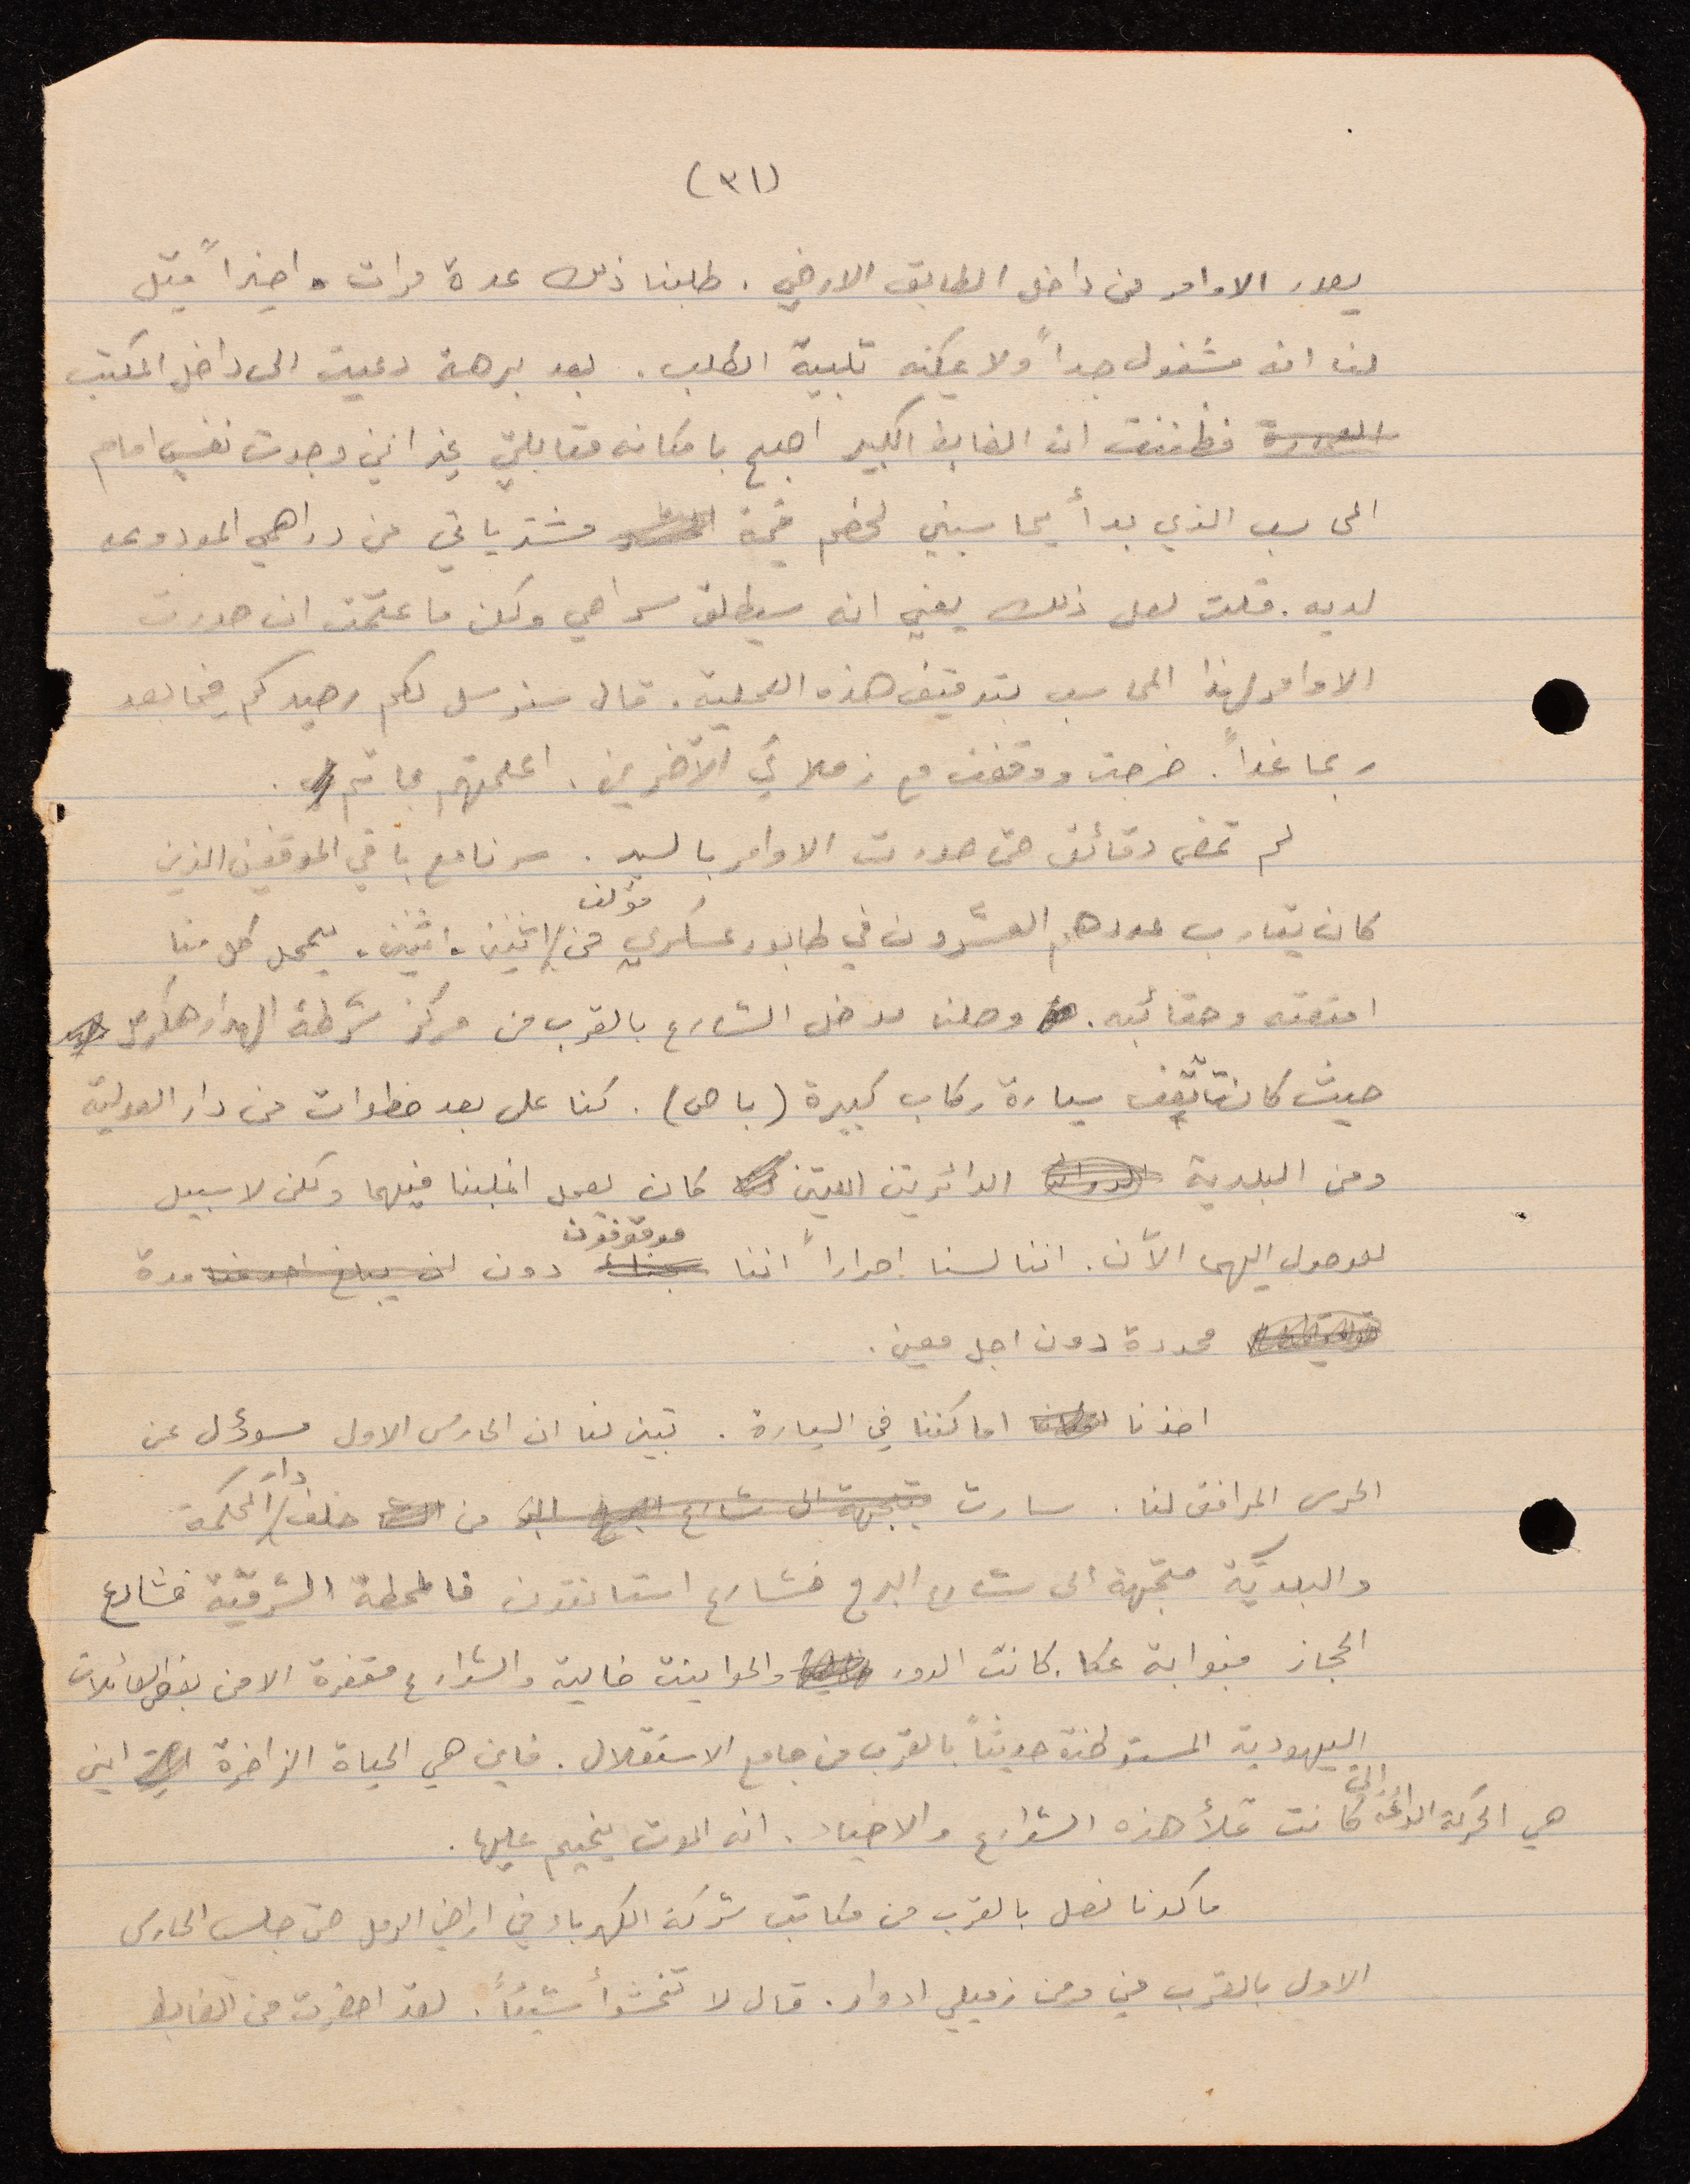 (٣١)
يصدر الاوامر من داخل الطابق الارضي. طلبنا ذلك عدة مرات واخيراً قيل
لنا انه مشغول جداً ولا يمكنه تلبية الطلب. بعد برهة دعيت الى داخل المكتب
فظننت ان الضابط الكبير اصبح بامكانه مقابلتي غير انني وجدت نفسي امام
المحاسب الذي بدأ يحاسبني لخصم قيمة مشترياتي من دراهمي المودوعه
لديه. قلت لعل ذلك يعني انه سيطلق سراحي ولكن ما عتمت ان صدرت
الاوامر لهذا المحاسب بتوقيف هذه العملية. قال سنرسل لكم رصيدكم فيما بعد
ربما غداً. خرجت ووقفت مع زملائي الآخرين. اعلمتهم بما تم.
لم تمض دقائق حتى صدرت الاوامر بالسير. سرنا مع باقي الموقفين الذين
كان يقارب عددهم العشرون في طابور عسكري مؤلف من اثنين، اثنين، يحمل كل منا
امتعته وحقائبه. وصلنا مدخل الشارع بالقرب من مركز شرطة الهدار هكرمل
حيث كانت تقف سيارة ركاب كبيرة (باص). كنا على بعد خطوات من دار العدلية
ومن البلدية الدائرتين اللتين كان يعمل اغلبنا فيهما ولكن لا سبيل
للوصول اليهما الآن. اننا لسنا احراراً اننا موقوفون دون مدة
محددة دون اجل معين.
اخذنا اماكننا في السيارة. تبين لنا ان الحارس الاول مسوؤل عن
الحرس المرافق لنا. سارت من خلف دار المحكمة
والبلديّة متجهة الى شارع البرج فشارع استانتون فالمحطة الشرقيّة فشارع
الحجاز فبوابة عكا. كانت الدور والحوانيت خالية والشوارع مقفرة الا من بعض العائلات
اليهودية المستوطنة حديثاً بالقرب من جامع الاستقلال. فاين هي الحياة الزاخرة اين
هي الحركة الدائمة التي كانت تملأ هذه الشوارع والاحياء. ان الموت يخيم عليها.
ما كدنا نصل بالقرب من مكاتب شركة الكهرباء في اراضي الرمل حتى جلس الحارس
الاول بالقرب مني ومن زميلي ادوار. قال لا تخشوا شيئاً. لقد احضرت من الضابط